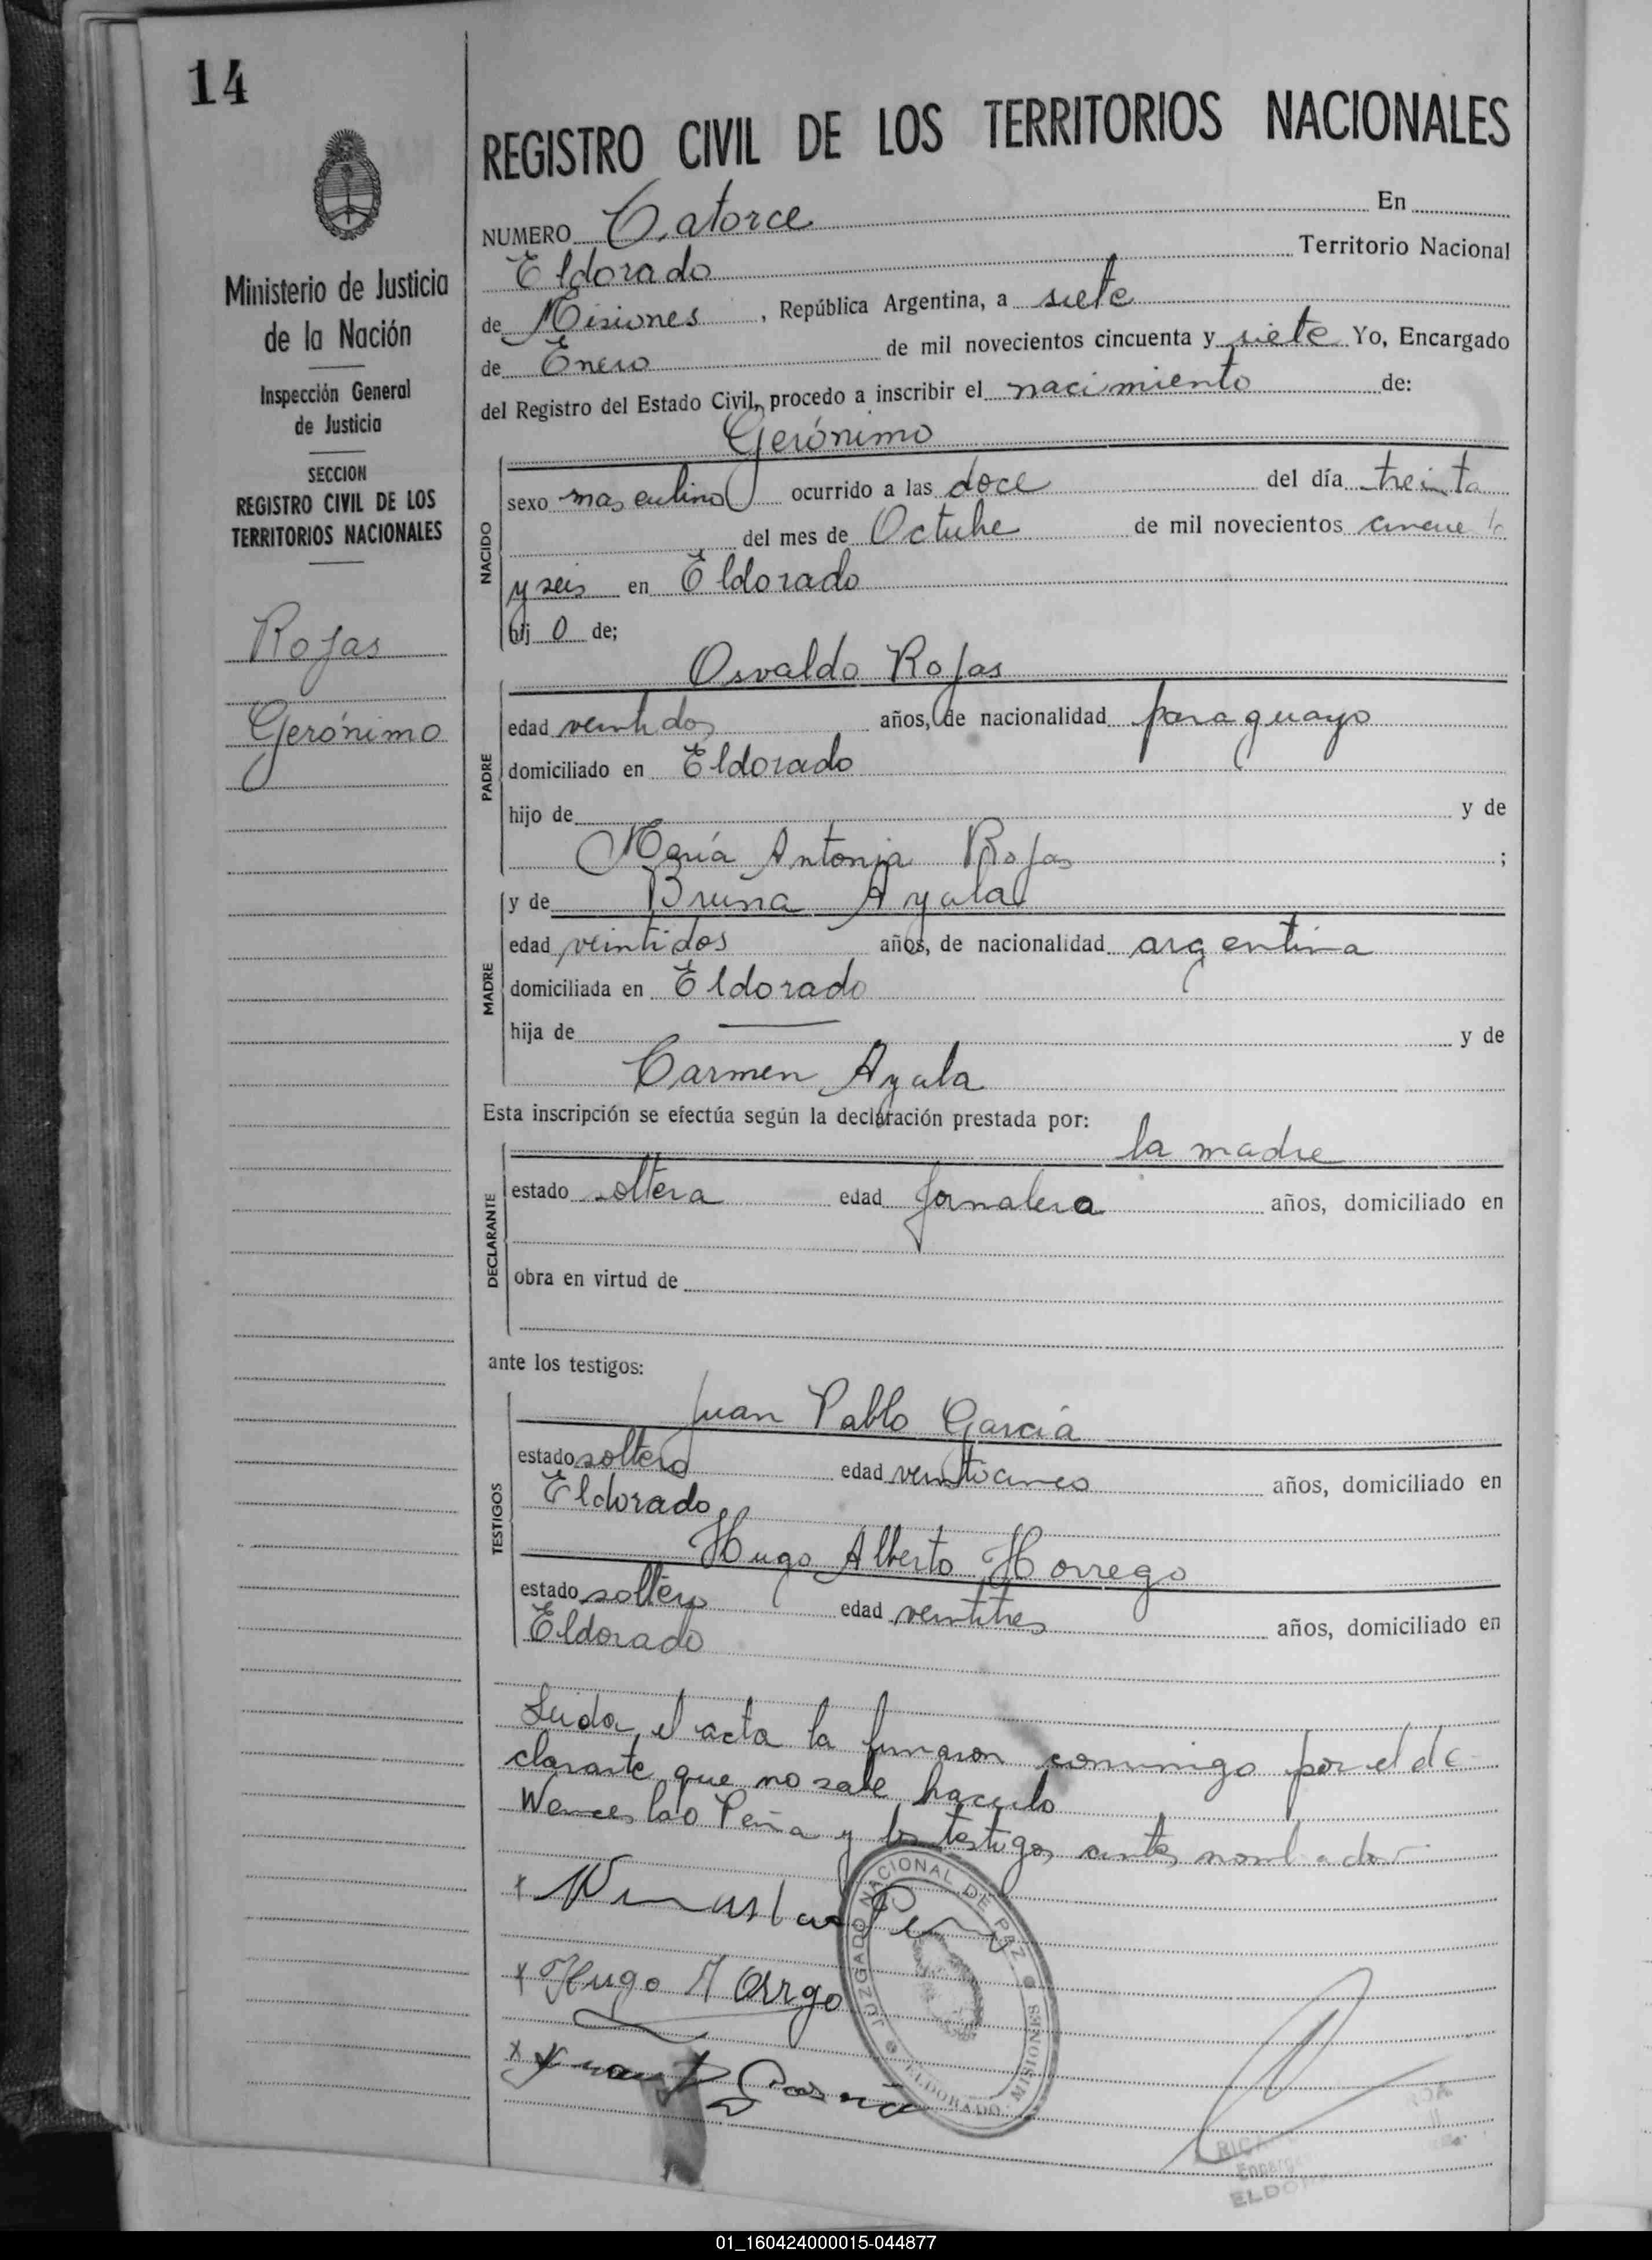 14
REGISTRO CIVIL DE LOS TERRITORIOS NACIONALES
Ministerio de Justicia
de la Nación
Inspección General
de Justicia
SECCION
REGISTRO CIVIL DE LOS
TERRITORIOS NACIONALES
Rojas
Gerónimo
NUMERO Catorce En
Eldorado Territorio Nacional
de Misiones, República Argentina, a siete
de Enero de mil novecientos cincuenta y siete Yo, Encargado
del Registro del Estado Civil, procedo a inscribir el nacimiento de:
Gerónimo
NACIDO
sexo masculino ocurrido a las doce del día treinta
del mes de Octubre de mil novecientos cincuenta
y seis en Eldorado
hij o de;
Osvaldo Rojas
PADRE
edad veintidos años, de nacionalidad paraguayo
domiciliado en Eldorado
hijo de y de
María Antonia Rojas ;
y de Bruna Ayala
MADRE
edad veintidos años, de nacionalidad argentina
domiciliada en Eldorado
hija de — y de
Carmen Ayala
Esta inscripción se efectúa según la declaración prestada por:
la madre
DECLARANTE
estado soltera edad jornalera años, domiciliado en
obra en virtud de
ante los testigos:
Juan Pablo García
TESTIGOS
estado soltero edad veinticinco años, domiciliado en
Eldorado
Hugo Alberto Horrego
estado soltero edad veintitres años, domiciliado en
Eldorado
Leida el acta la firmaron conmigo por el de-
clarante que no sabe hacerlo
Wenceslao Peña y los testigos antes nombrados
x Wenceslao Peña
x Hugo A Orrgo
x Juan P García
JUZGADO NACIONAL DE PAZ
ELDORADO MISIONES
01_160424000015-044877